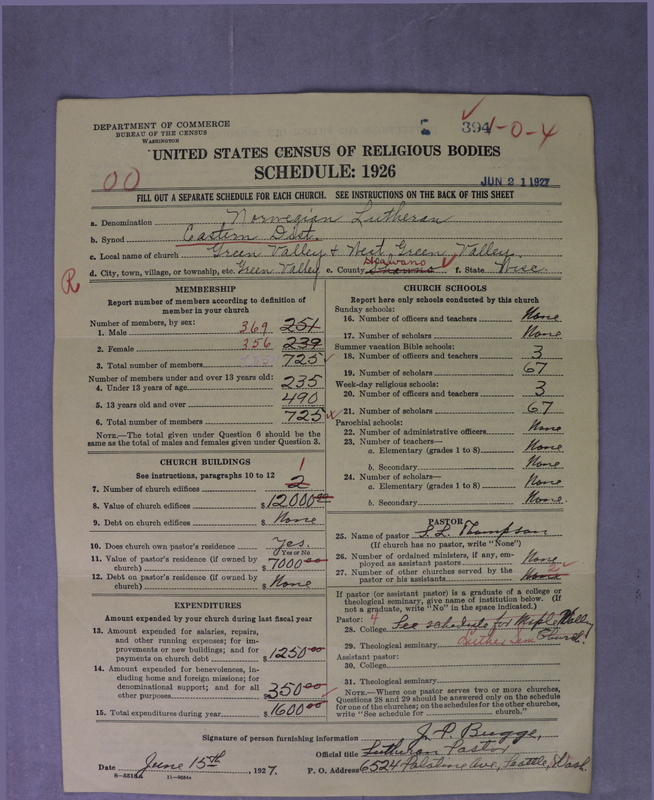 DEPARTMENT OF COMMERCE
BUREAU OF THE CENSUS
WASHINGTON
394 1-0-4
UNITED STATES CENSUS OF RELIGIOUS BODIES
SCHEDULE: 1926
JUN 21 1927
00
FILL OUT A SEPARATE SCHEDULE FOR EACH CHURCH. SEE INSTRUCTIONS ON THE BACK OF THIS SHEET
a. Denomination Norwegian Lutheran
b. Synod Eastern Dist.
c. Local name of church Green Valley & West Green Valley.
d. City, town, village, or township, etc. Green Valley e. County Shawano f. State Wisc.
R
MEMBERSHIP
Report number of members according to definition of
member in your church
Number of members, by sex:
1. Male 369 251
2. Female 356 239
3. Total number of members 725
Number of members under and over 13 years old:
4. Under 13 years of age 235
5. 13 years old and over 490
6. Total number of members 725
NOTE.—The total given under Question 6 should be
the same as the total of males and females given under Question 3.
CHURCH BUILDINGS
See instructions, paragraphs 10 to 12
7. Number of church edifices 1 2
8. Value of church edifices $12000.00
9. Debt on church edifices $None
10. Does church own pastor's residence Yes.
Yes or No
11. Value of pastor's residence (if owned by
church) $7000.00
12. Debt on pastor's residence (if owned by
church) $None
EXPENDITURES
Amount expended by your church during last fiscal year
13. Amount expended for salaries, repairs,
and other running expenses; for im-
provements or new buildings; and for
payments on church debt $1250.00
14. Amount expended for benevolences, in-
cluding home and foreign missions; for
denominational support; and for all
other purposes 350.00
15. Total expenditures during year $1600.00
CHURCH SCHOOLS
Report here only schools conducted by this church
Sunday schools:
16. Number of officers and teachers None
17. Number of scholars None
Summer vacation Bible schools:
18. Number of officers and teachers 3
19. Number of scholars 67
Week-day religious schools:
20. Number of officers and teachers 3
21. Number of scholars 67
Parochial schools:
22. Number of administrative officers None
23. Number of teachers—
a. Elementary (grades 1 to 8) None
b. Secondary None
24. Number of scholars—
a. Elementary (grades 1 to 8) None
b. Secondary None
PASTOR
25. Name of pastor S. L. Thompson
(If church has no pastor, write "None")
26. Number of ordained ministers, if any, em-
ployed as assistant pastors None
27. Number of other churches served by the
pastor or his assistants None
If pastor (or assistant pastor) is a graduate of a college or
theological seminary, give name of institution below. (If
not a graduate, write "No" in the space indicated.)
Pastor:
28. College See schedule for Maple Valley
29. Theological seminary Luther Sem Church.
Assistant pastor:
30. College
31. Theological seminary
NOTE.—Where one pastor serves two or more churches,
Questions 28 and 29 should be answered only on the schedule
for one of the churches; on the schedules for the other churches,
write "See schedule for church."
Signature of person furnishing information J. P. Bugge,
Official title Lutheran Pastor
Date June 15th, 1927. P. O. Address 6524 Palatine Ave, Seattle, Wash.